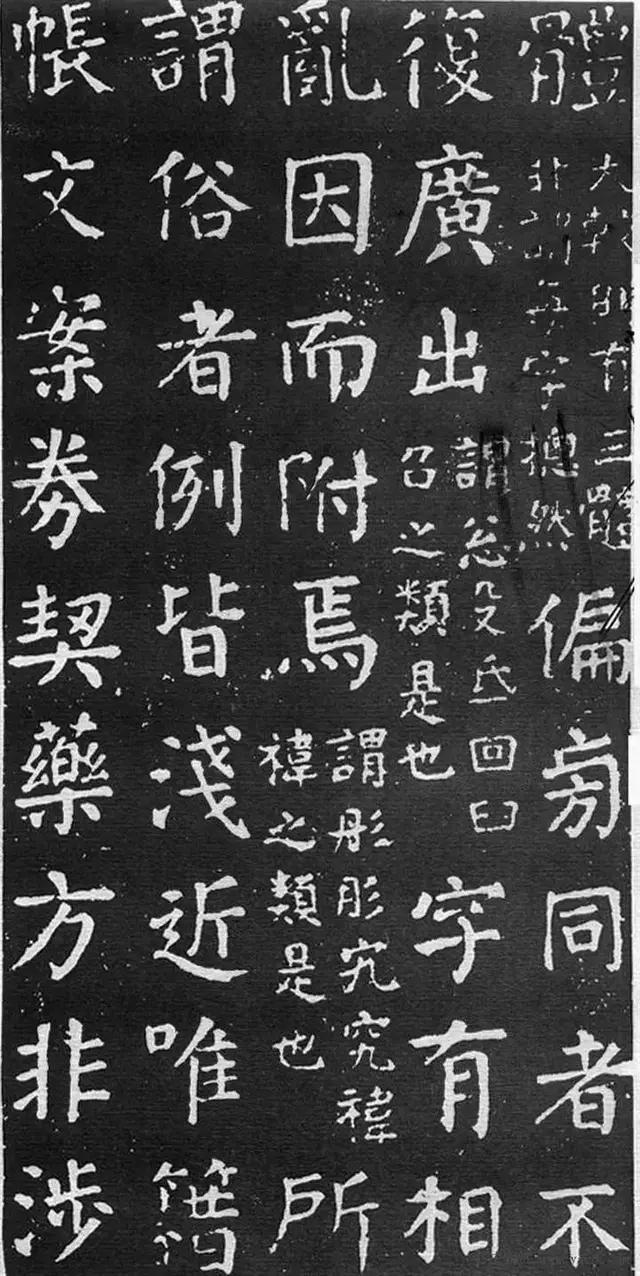 體大較則有三體非謂每字揔然偏旁同者不
復廣出謂忩殳氐回臼召之類是也字有相
亂因而附焉謂彤肜宄究禕褘之類是也所
謂俗者例皆淺近唯籍
帳文案券契藥方非涉